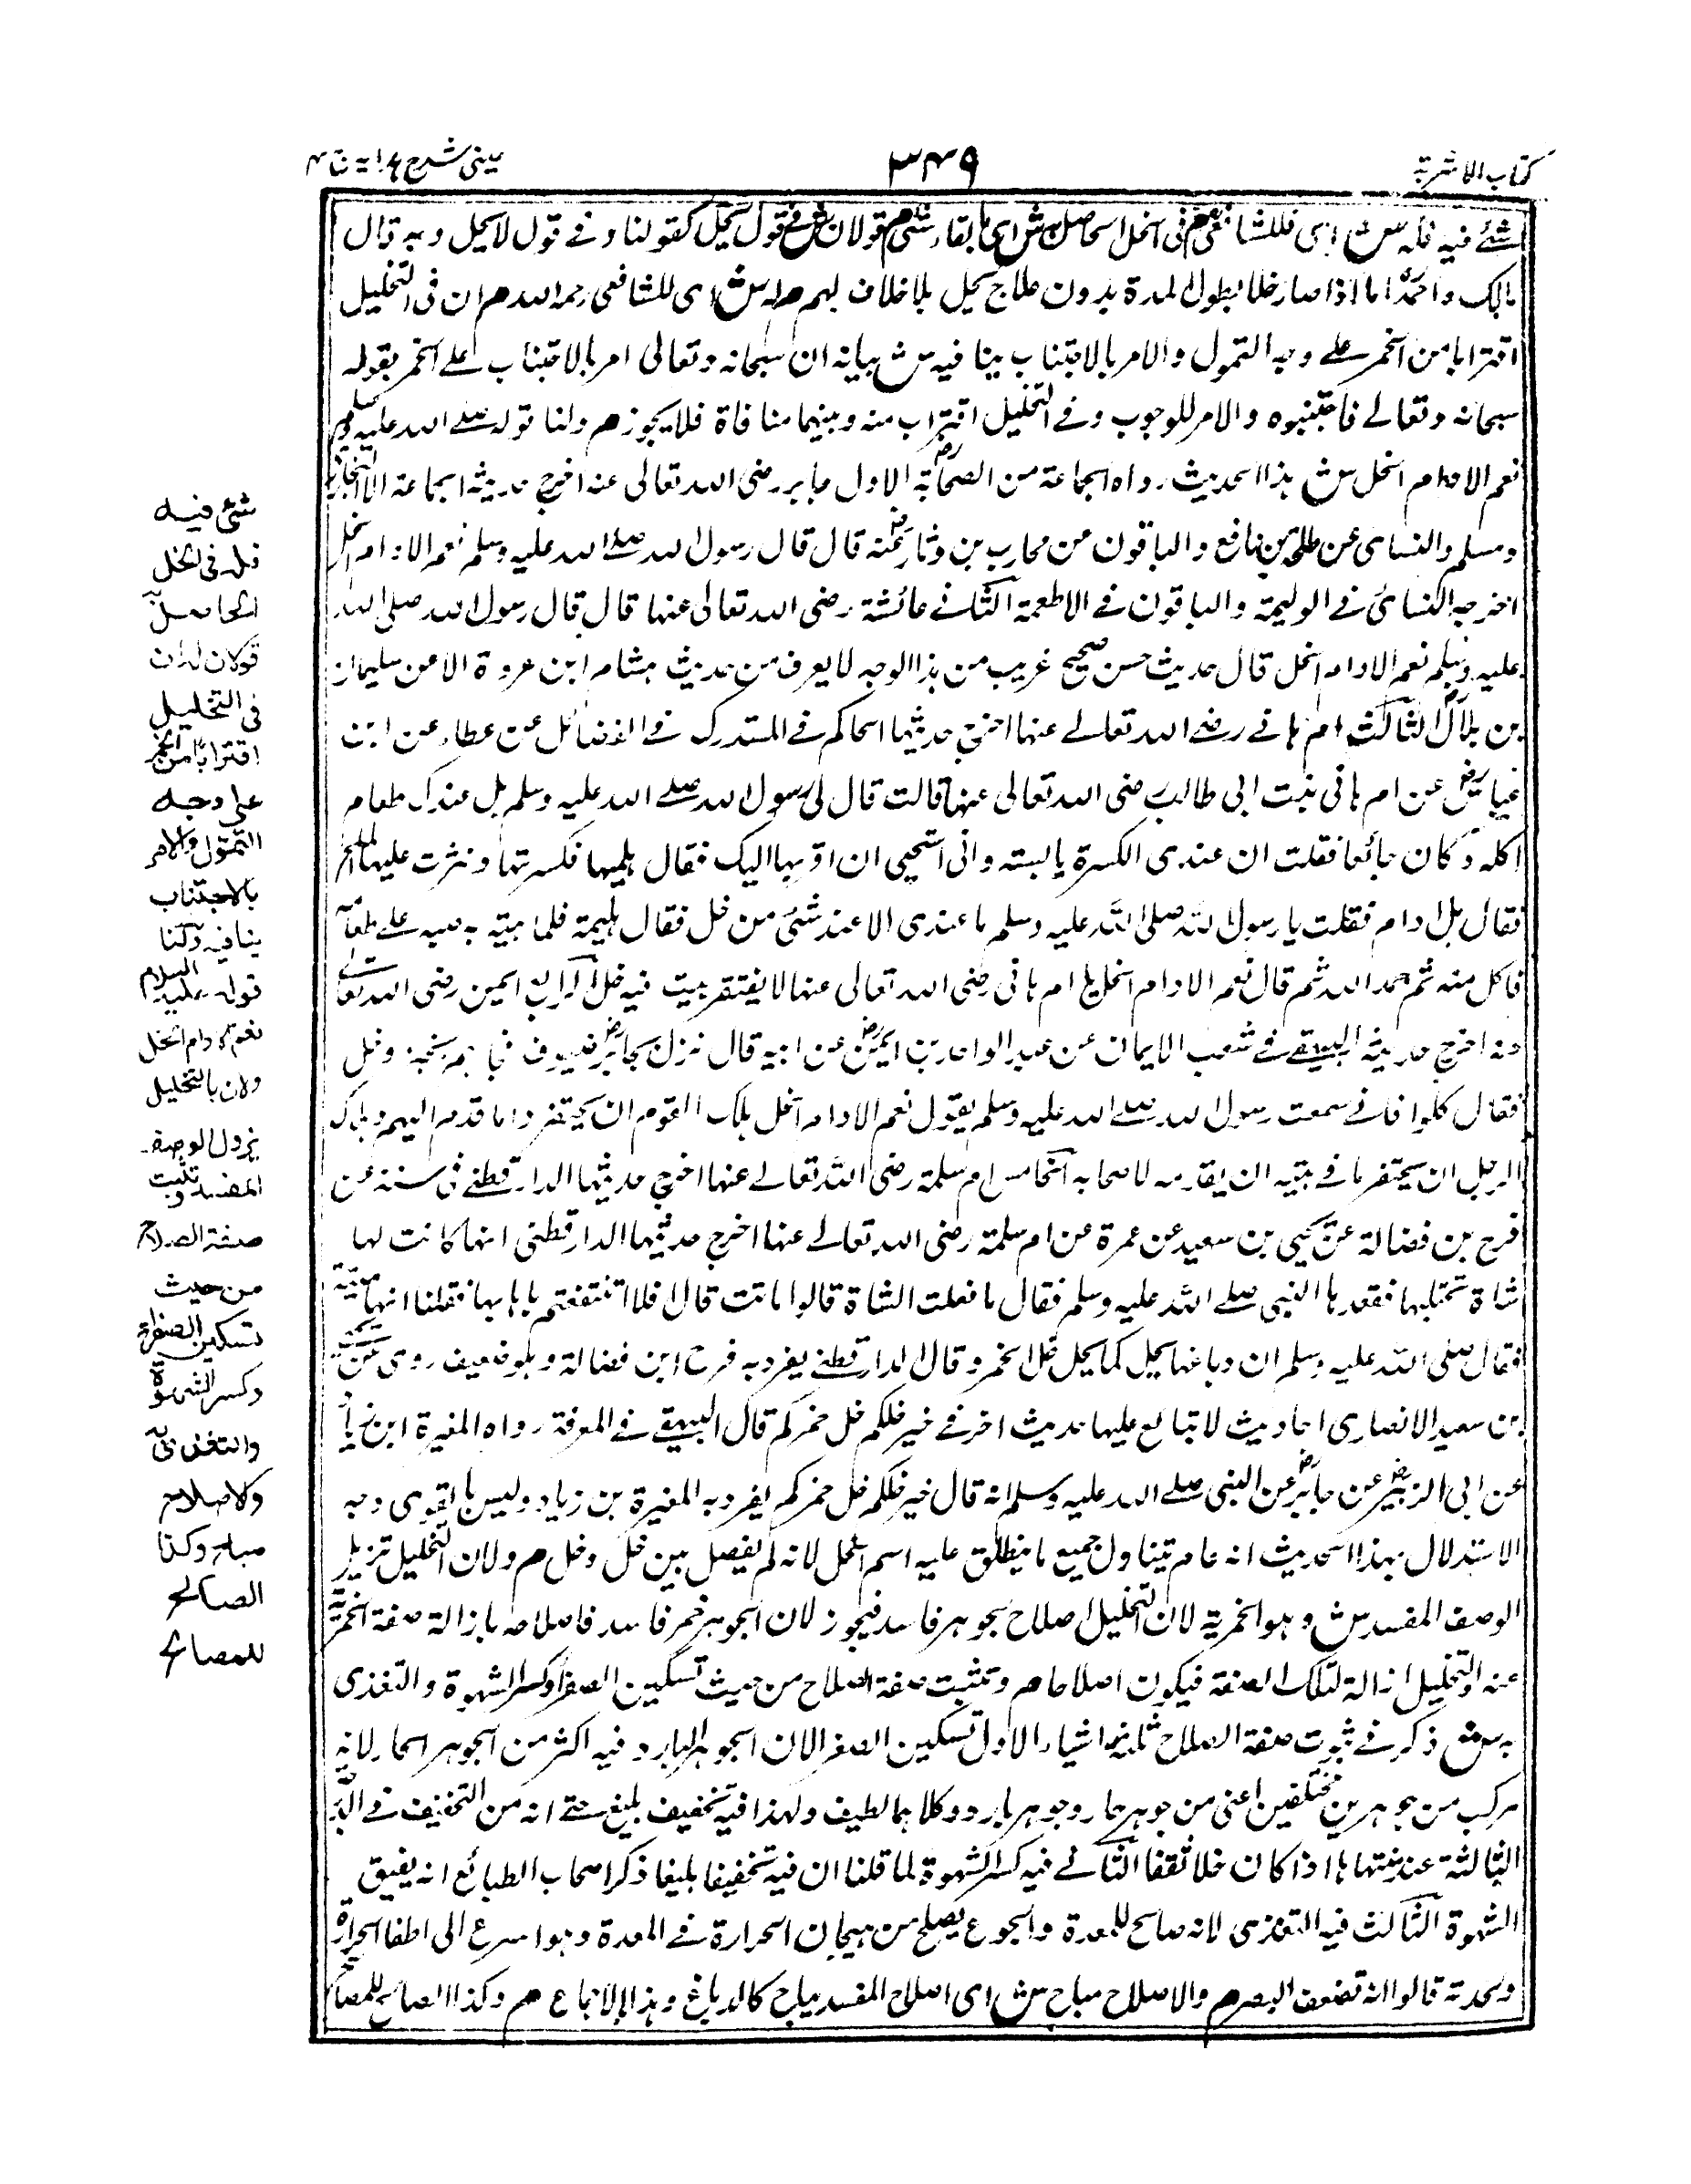 كتاب الاشربة
٣٤٩
عينى شرح هداية ج ٤
شئ فيه فله ش اى فللشافعى م فى الخل الحاصل ش اى بالقاء شئ م قولان ش فى قول يحل كقولنا و فى قول لا يحل و به قال
مالك و احمد اما اذا صار خلا بطول المدة بدون علاج يحل بلا خلاف لهم م له ش اى للشافعى رحمه الله م ان فى التخليل
اقترابا من الخمر على وجه التمول والامر بالاجتناب ينافيه ش بيانه ان سبحانه و تعالى امر بالاجتناب على الخمر بقوله
سبحانه و تعالى فاجتنبوه والامر للوجوب و فى التخليل اقتراب منه و بينهما منافاة فلا يجوز م ولنا قوله صلى الله عليه وسلم
نعم الادام الخل ش هذا الحديث رواه الجماعة من الصحابة الاول جابر رضى الله تعالى عنه اخرج حديثه الجماعة الا البخارى
ومسلم والنسائى عن طلحة بن نافع والباقون من محارب بن دثار عنه قال قال رسول الله صلى الله عليه وسلم نعم الادام الخل
اخرجه النسائى فى الوليمة والباقون فى الاطعمة الثانى عائشة رضى الله تعالى عنها قال قال رسول الله صلى الله
عليه وسلم نعم الادام الخل قال حديث حسن صحيح غريب من هذا الوجه لا يعرف من حديث هشام ابن عروة الا من سليمان
بن بلال الثالث ام هانى رضى الله تعالى عنها اخرج حديثها الحاكم فى المستدرك فى الفضائل عن عطاء عن ابن
عباس عن ام هانى بنت ابى طالب رضى الله تعالى عنها قالت قال لى رسول الله صلى الله عليه وسلم هل عندك طعام
اكله و كان جائعا فقلت ان عندى الكسرة يابسته وانى استحيى ان اقربها اليك فقال هلميها فكسرتها ونثرت عليها الملح
فقال هل ادام فقلت يا رسول الله صلى الله عليه وسلم ما عندى الا عند شئ من خل فقال هلميه فلما جئته به صبه على طعامه
فاكل منه ثم حمد الله ثم قال نعم الادام الخل يا ام هانى رضى الله تعالى عنها لا يفتقر بيت فيه خل الرابع ايمن رضى الله تعالى
عنه اخرج حديثه البيهقى فى شعب الايمان عن عبد الواحد بن ايمن عن ابيه قال نزل بجابر ضيوف فجاءهم بخبز وخل
فقال كلوا فانى سمعت رسول الله صلى الله عليه وسلم يقول نعم الادام الخل هلاك القوم ان يحتقروا ما قدم اليهم وهلاك
الرجل ان يحتقر ما فى بيته ان يقدمه لاصحابه الخامس ام سلمة رضى الله تعالى عنها اخرج حديثها الدارقطنى فى سننه عن
فرج بن فضالة عن يحيى بن سعيد عن عمرة عن ام سلمة رضى الله تعالى عنها اخرج حديثها الدارقطنى انها كانت لها
شاة تحتلبها ففقدها النبى صلى الله عليه وسلم فقال ما فعلت الشاة قالوا ماتت قال افلا انتفعتم باهابها فقلنا انها ميتة
فقال صلى الله عليه وسلم ان دباغها يحل كما يحل خل الخمر وقال الدارقطنى يفرد به فرج ابن فضالة وهو ضعيف روى عن يحيى
بن سعيد الانصارى احاديث لا تتابع عليها حديث اخر فى خير خلكم خل خمركم قال البيهقى فى المعرفة رواه المغيرة ابن زياد
عن ابى الزبير عن جابر عن النبى صلى الله عليه وسلم انه قال خير خلكم خل خمركم يفرد به المغيرة بن زياد وليس بالقوى وجه
الاستدلال بهذا الحديث انه عام يتناول جميع ما ينطلق عليه اسم الخل لانه لم يفصل بين خل وخل م ولان التخليل تزيل
الوصف المفسد ش وهو الخمرية لان التخليل اصلاح لجوهر فاسد فيجوز لان الجوهر خمر فاسد فاصلاحه بازالة صفة الخمرية
عنه والتخليل ازالة لتلك الصفة فيكون اصلاحا م وتثبت صفة الصلاح من حيث تسكين الصفراء وكسر الشهوة والتغذى
به ش ذكر فى ثبوت صفة الصلاح ثلثة اشياء الاول تسكين الصفرا لان الجوهر البارد فيه اكثر من الجوهر الحار لانه
مركب من جوهرين مختلفين اعنى من جوهر حار وجوهر بارد وكلاهما لطيف ولهذا فيه تخفيف بليغ حتى انه من التخفيف فى الدرجة
الثالثة عند منتهاها اذا كان خلا ثقفا الثانى فيه كسر الشهوة لما قلنا ان فيه تخفيفا بليغا ذكر اصحاب الطبائع انه يفيق
الشهوة الثالث فيه التغذى لانه صالح للمعدة والجوع يصلح من هيجان الحرارة فى المعدة وهو اسرع الى اطفا الحرارة
ولحدته قالوا انه تضعف البصر م والاصلاح مباح ش اى اصلاح المفسد مباح كالدباغ وهذا بالاجماع م وكذا الصالح للمصالح
شئ فيه
فله فى الخل
الحاصل به
قولان له ان
فى التخليل
اقترابا من الخمر
على وجه
التمول والامر
بالاجتناب
ينافيه ولنا
قوله عليه السلام
نعم الادام الخل
ولان بالتخليل
يزول الوصف
المفسد وتثبت
صفة الصلاح
من حيث
تسكين الصفراء
وكسر الشهوة
والتغذى به
والاصلاح
مباح وكذا
الصالح
للمصالح